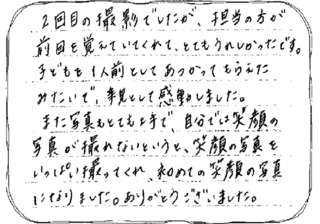 2回目の撮影でしたが、担当の方が
前回を覚えていてくれて、とてもうれしかったです。
子どもを1人前としてあつかってもらえた
みたいで、親として感動しました。
また写真もとても上手で、自分では笑顔の
写真が撮れないというと、笑顔の写真を
いっぱい撮ってくれ、初めての笑顔の写真
になりました。ありがとうございました。